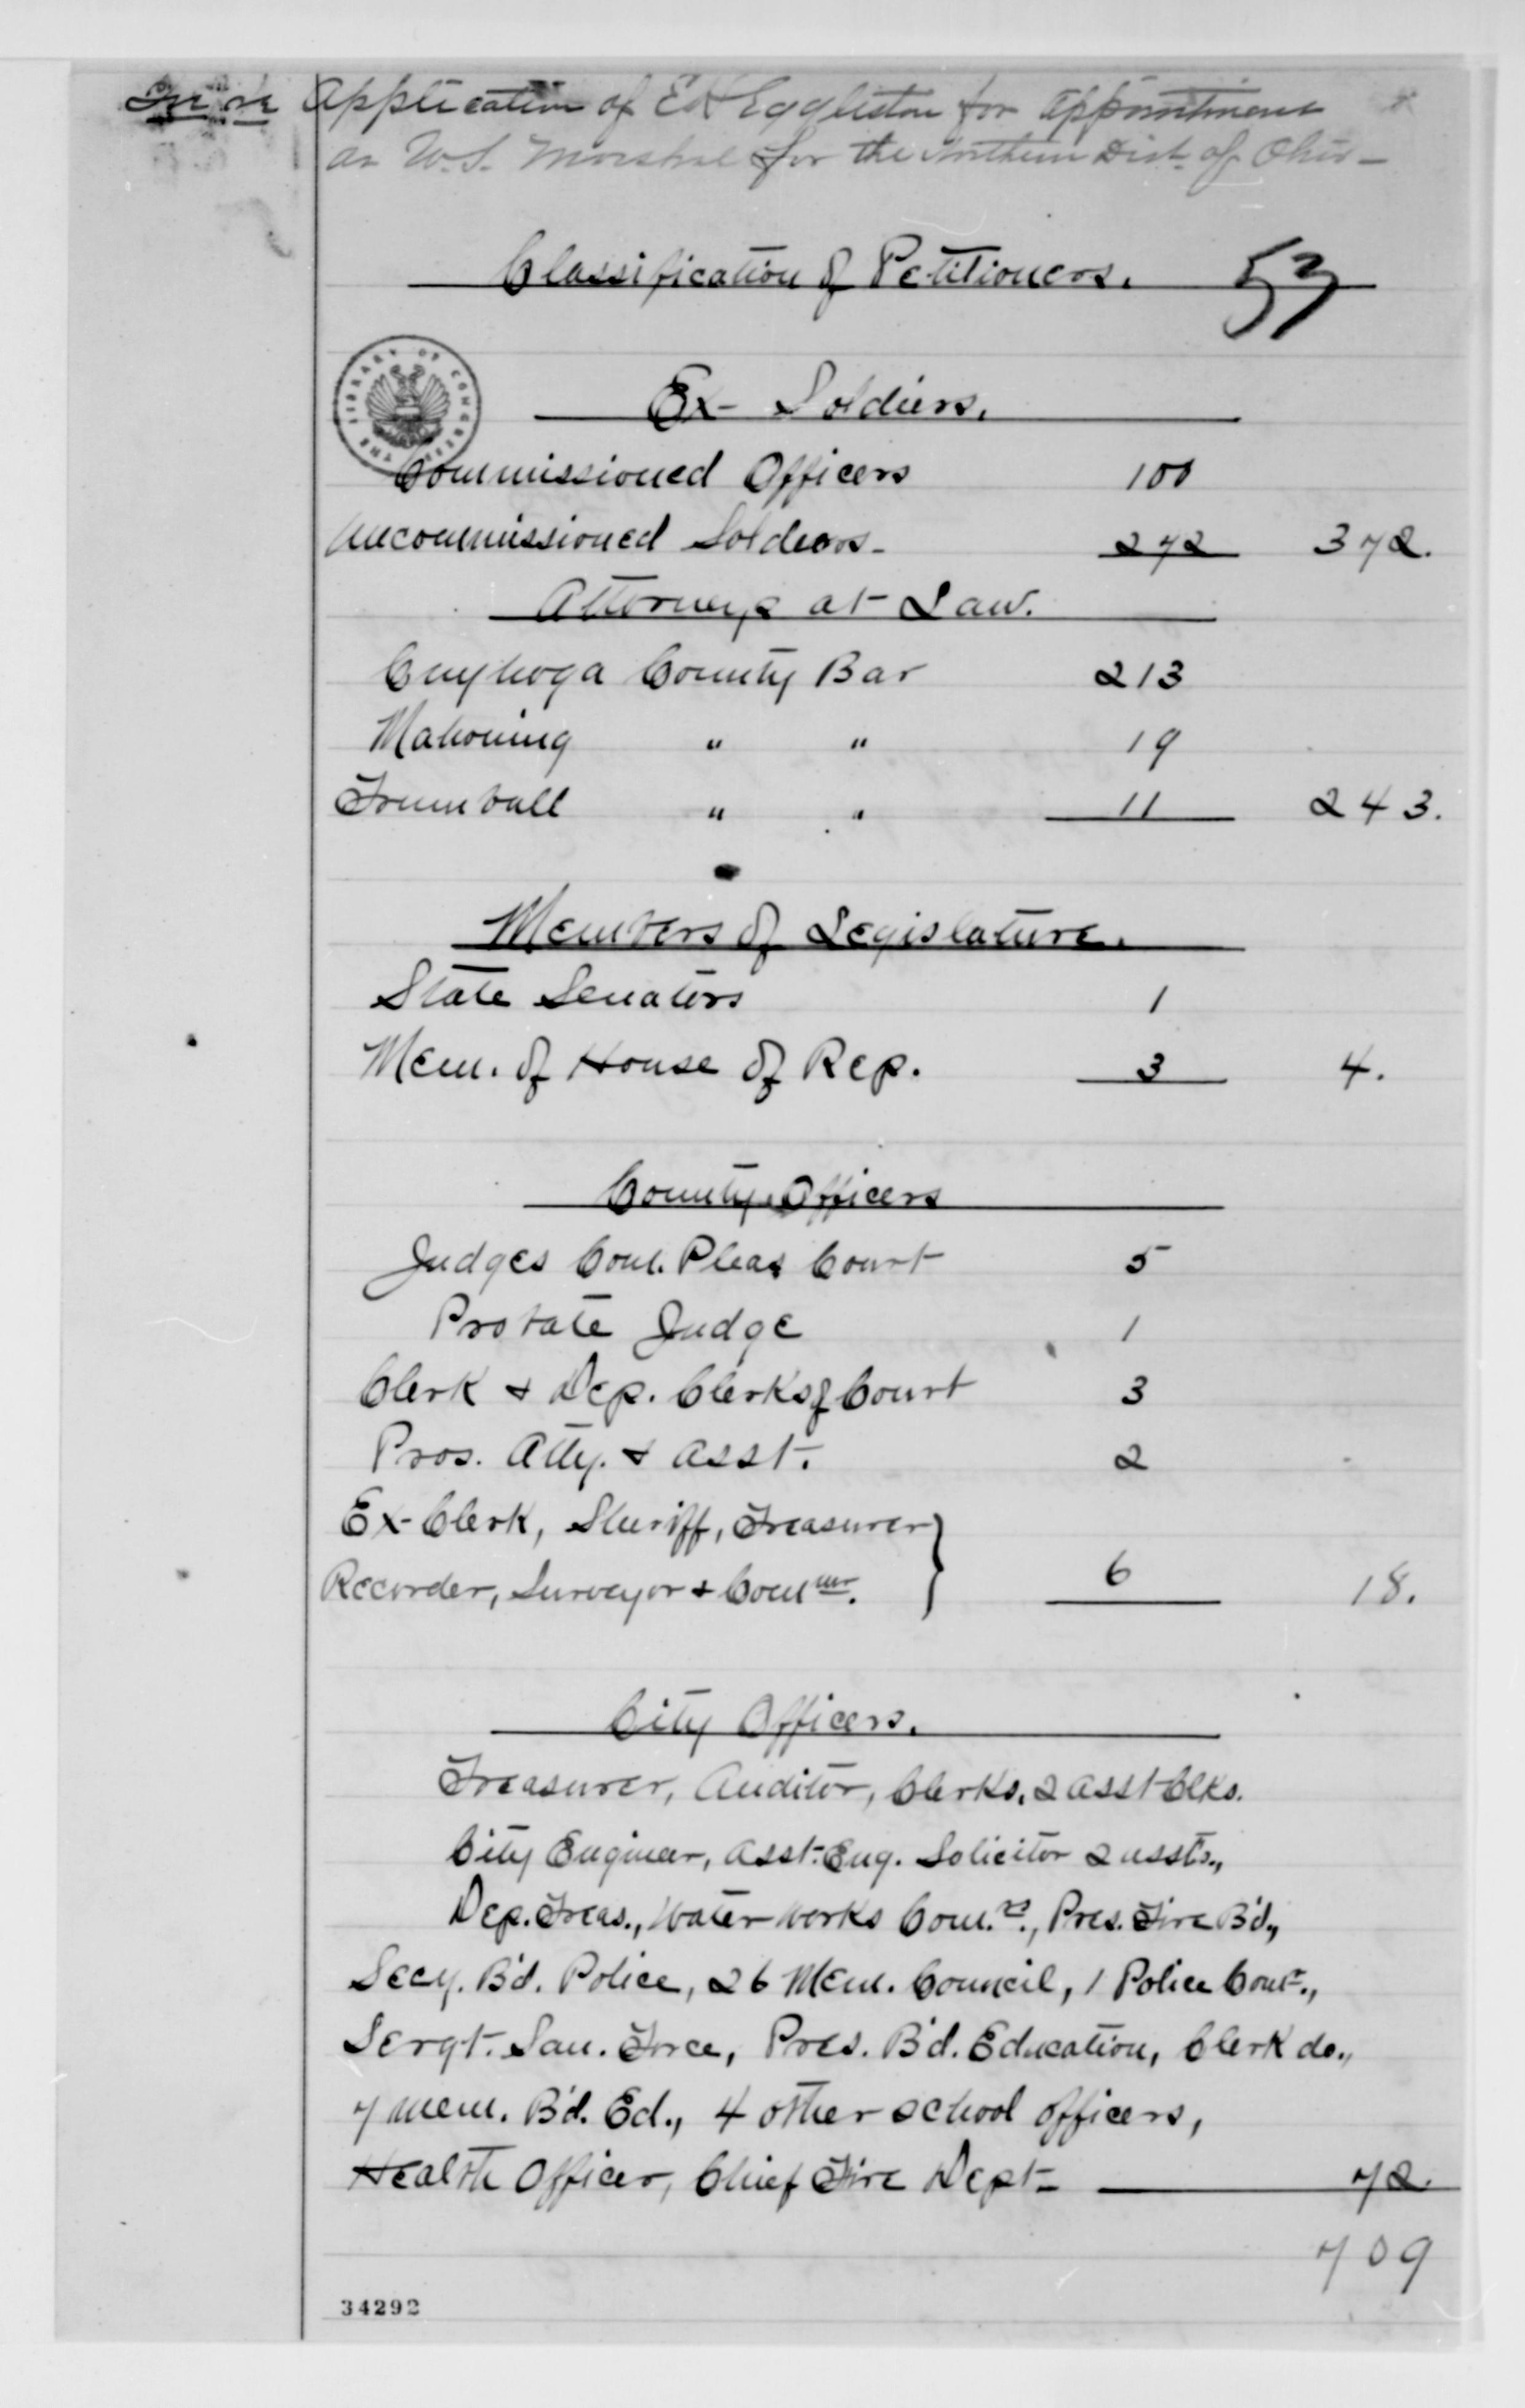 In re Application of E H Eggleston for appointment
as U.S. Marshal for the Northern Dist. of Ohio -
Classification of Petitioners. 53
THE LIBRARY OF CONGRESS
Ex- Soldiers.
Commissioned Officers 100
Uncommissioned Soldiers- 272 372.
Attorneys at Law.
Cuyhoga County Bar 213
Mahoning " " 19
Trumbull " " 11 243.
Members of Legislature.
State Senators 1
Mem. of House of Rep. 3 4.
County Officers
Judges Com. Pleas Court 5
Probate Judge 1
Clerk & Dep. Clerks of Court 3
Pros. Atty. & Asst. 2
Ex-Clerk, Sheriff, Treasurer }
Recorder, Surveyor & Commr. } 6 18.
City Officers.
Treasurer, Auditor, Clerks, 2 Asst Clks.
City Engineer, Asst. Eng. Solicitor 2 assts.,
Dep. Treas., Water works Com.rs., Pres. Fire B'd.,
Secy. B'd. Police, 26 Mem. Council, 1 Police Comr.,
Sergt. San. Force, Pres. B'd. Education, Clerk do.,
7 mem. B'd. Ed., 4 other school officers,
Health Officer, Chief Fire Dept- 72.
709
34292